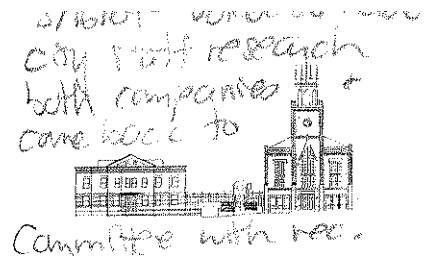 city staff research
both companies &
come back to
Committee with rec.